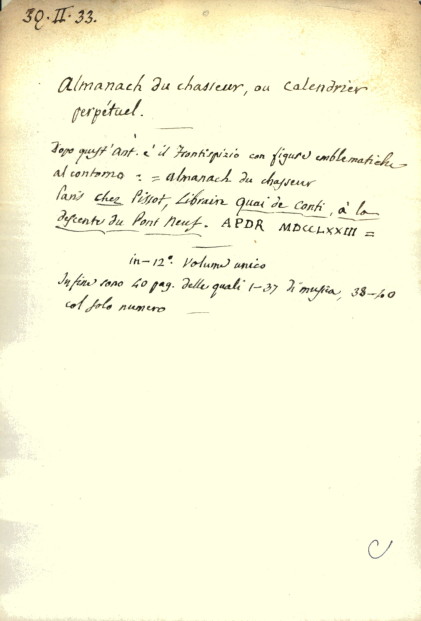 39. II. 33.
Almanach du chasseur, ou Calendrier
perpétuel.
Dopo quest' Ant. è il Frontispizio con figure emblematiche
al contorno := Almanach du chasseur
Paris chez Pissot, Libraire Quai de Conti, à la
descente du Pont Neuf. APDR MDCCLXXIII =
in-12º. Volume unico
In fine sono 40 pag. delle quali 1-37 di musica, 38-40
col solo numero